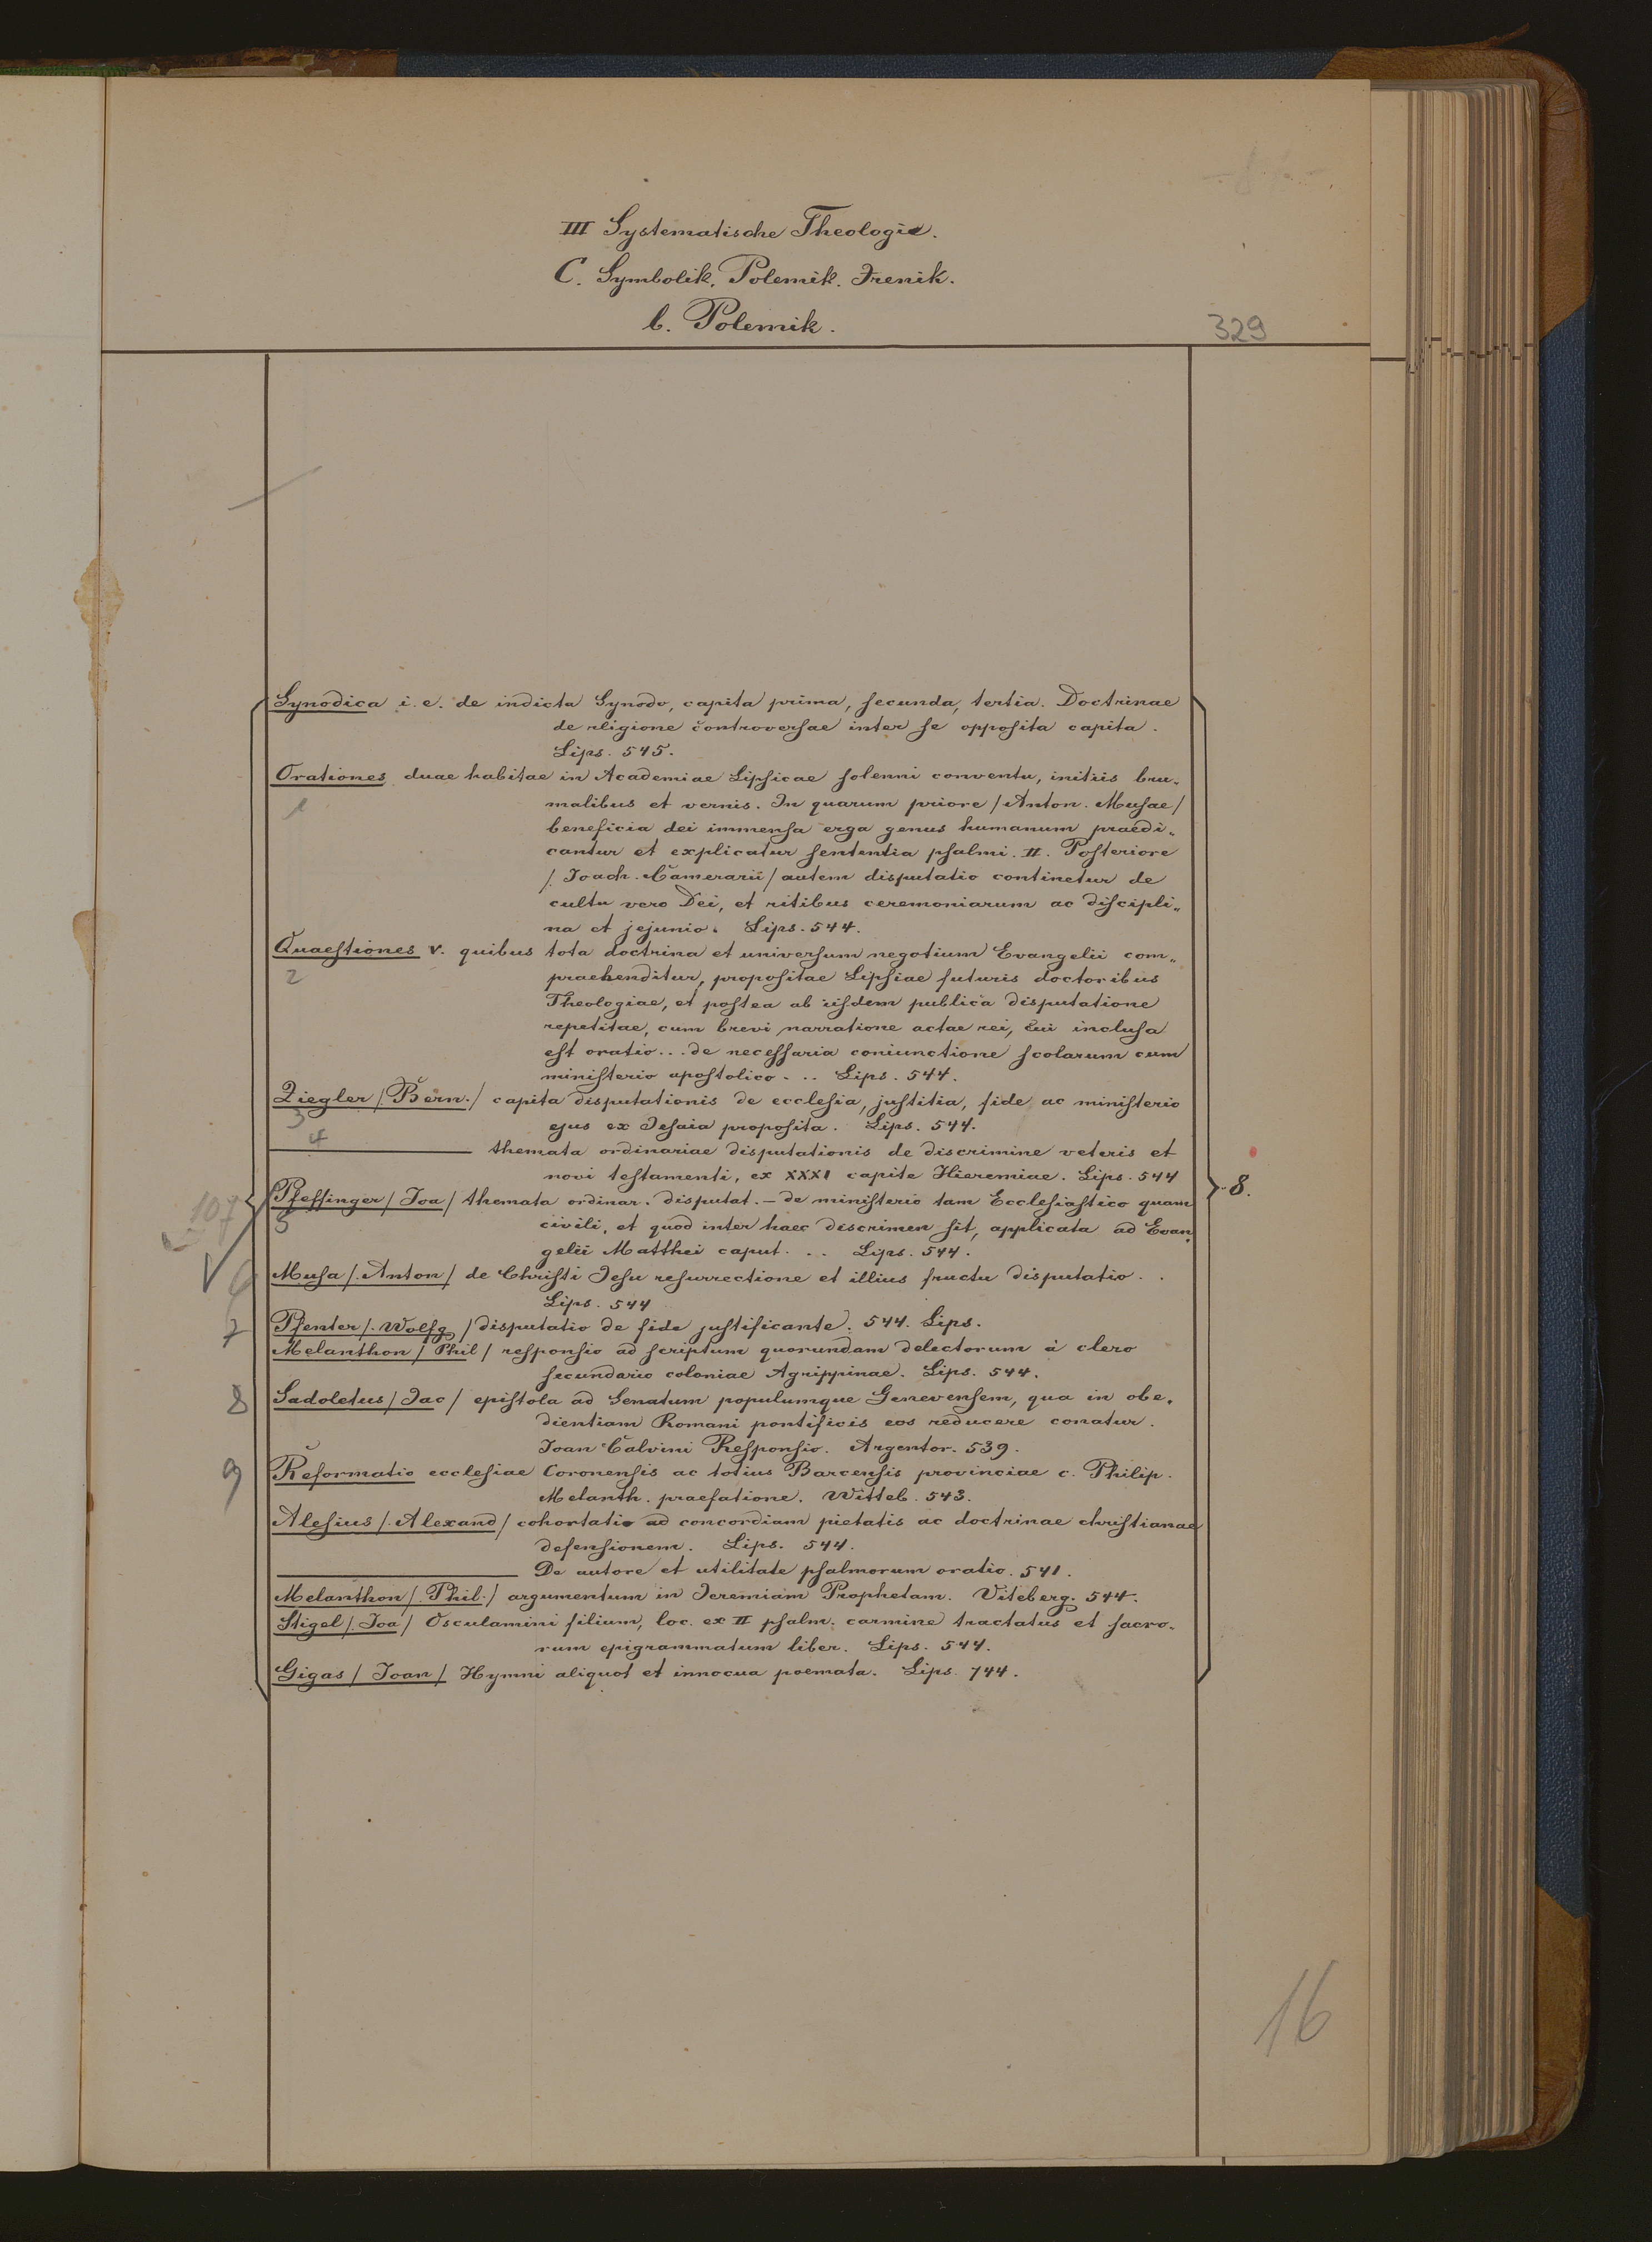 III Systematische Theologie.
C. Symbolik, Polemik. Irenik.
b. Polemik.
329
Synodica i. e. de indicta Synodo, capita prima, secunda, tertia. Doctrinae
de religione controversae inter se opposita capita.
Lips. 545.
Orationes duae habitae in Academiae Lipsicae solenni conventu, initiis bru-
1
malibus et vernis. In quarum priore /Anton. Musae/
beneficia dei immensa erga genus humanum praedi-
cantur et explicatur sententia psalmi. II. Posteriore
/. Joach. Camerarii/ autem disputatio continetur de
cultu vero Dei, et ritibus ceremoniarum ac discipli-
na et jejunio. Lips. 544.
Quaestiones v. quibus tota doctrina et universum negotium Evangelii com-
2
praehenditur, propositae Lipsiae futuris doctoribus
Theologiae, et postea ab iisdem publica disputatione
repetitae, cum brevi narratione actae rei, cui inclusa
est oratio... de necessaria coniunctione scolarum cum
ministerio apostolico... Lips. 544.
Ziegler /. Bern./ capita disputationis de ecclesia, justitia, fide ac ministerio
3
ejus ex Jesaia proposita. Lips. 544.
4
themata ordinariae disputationis de discrimine veteris et
novi testamenti, ex XXXI capite Hieremiae. Lips. 544
8.
107
Pfeffinger / Joa / themata ordinar. disputat. – de ministerio tam Ecclesiastico quam
5
civili, et quod inter haec discrimen sit, applicata ad Evan-
gelii Matthei caput... Lips. 544.
6
Musa /. Anton / de Christi Jesu resurrectione et illius fructu disputatio..
Lips. 544
7
Pfenter /. Wolfg / disputatio de fide justificante. 544. Lips.
Melanthon / Phil / responsio ad scriptum quorundam delectorum à clero
secundario coloniae Agrippinae. Lips. 544.
8
Sadoletus / Jac / epistola ad Senatum populumque Genevensem, qua in obe-
dientiam Romani pontificis eos reducere conatur.
Joan Calvini Responsio. Argentor. 539.
9
Reformatio ecclesiae Coronensis ac totius Barcensis provinciae c. Philip.
Melanth. praefatione. Witteb. 543.
Alesius /. Alexand / cohortatio ad concordiam pietatis ac doctrinae christianae
defensionem. Lips. 544.
De autore et utilitate psalmorum oratio. 541.
Melanthon /. Phil. / argumentum in Jeremiam Prophetam. Viteberg. 544.
Stigel /. Joa / Osculamini filium, loc. ex II psalm. carmine tractatus et sacro-
rum epigrammatum liber. Lips. 544.
Gigas / Joan / Hymni aliquot et innocua poemata. Lips. 744.
16